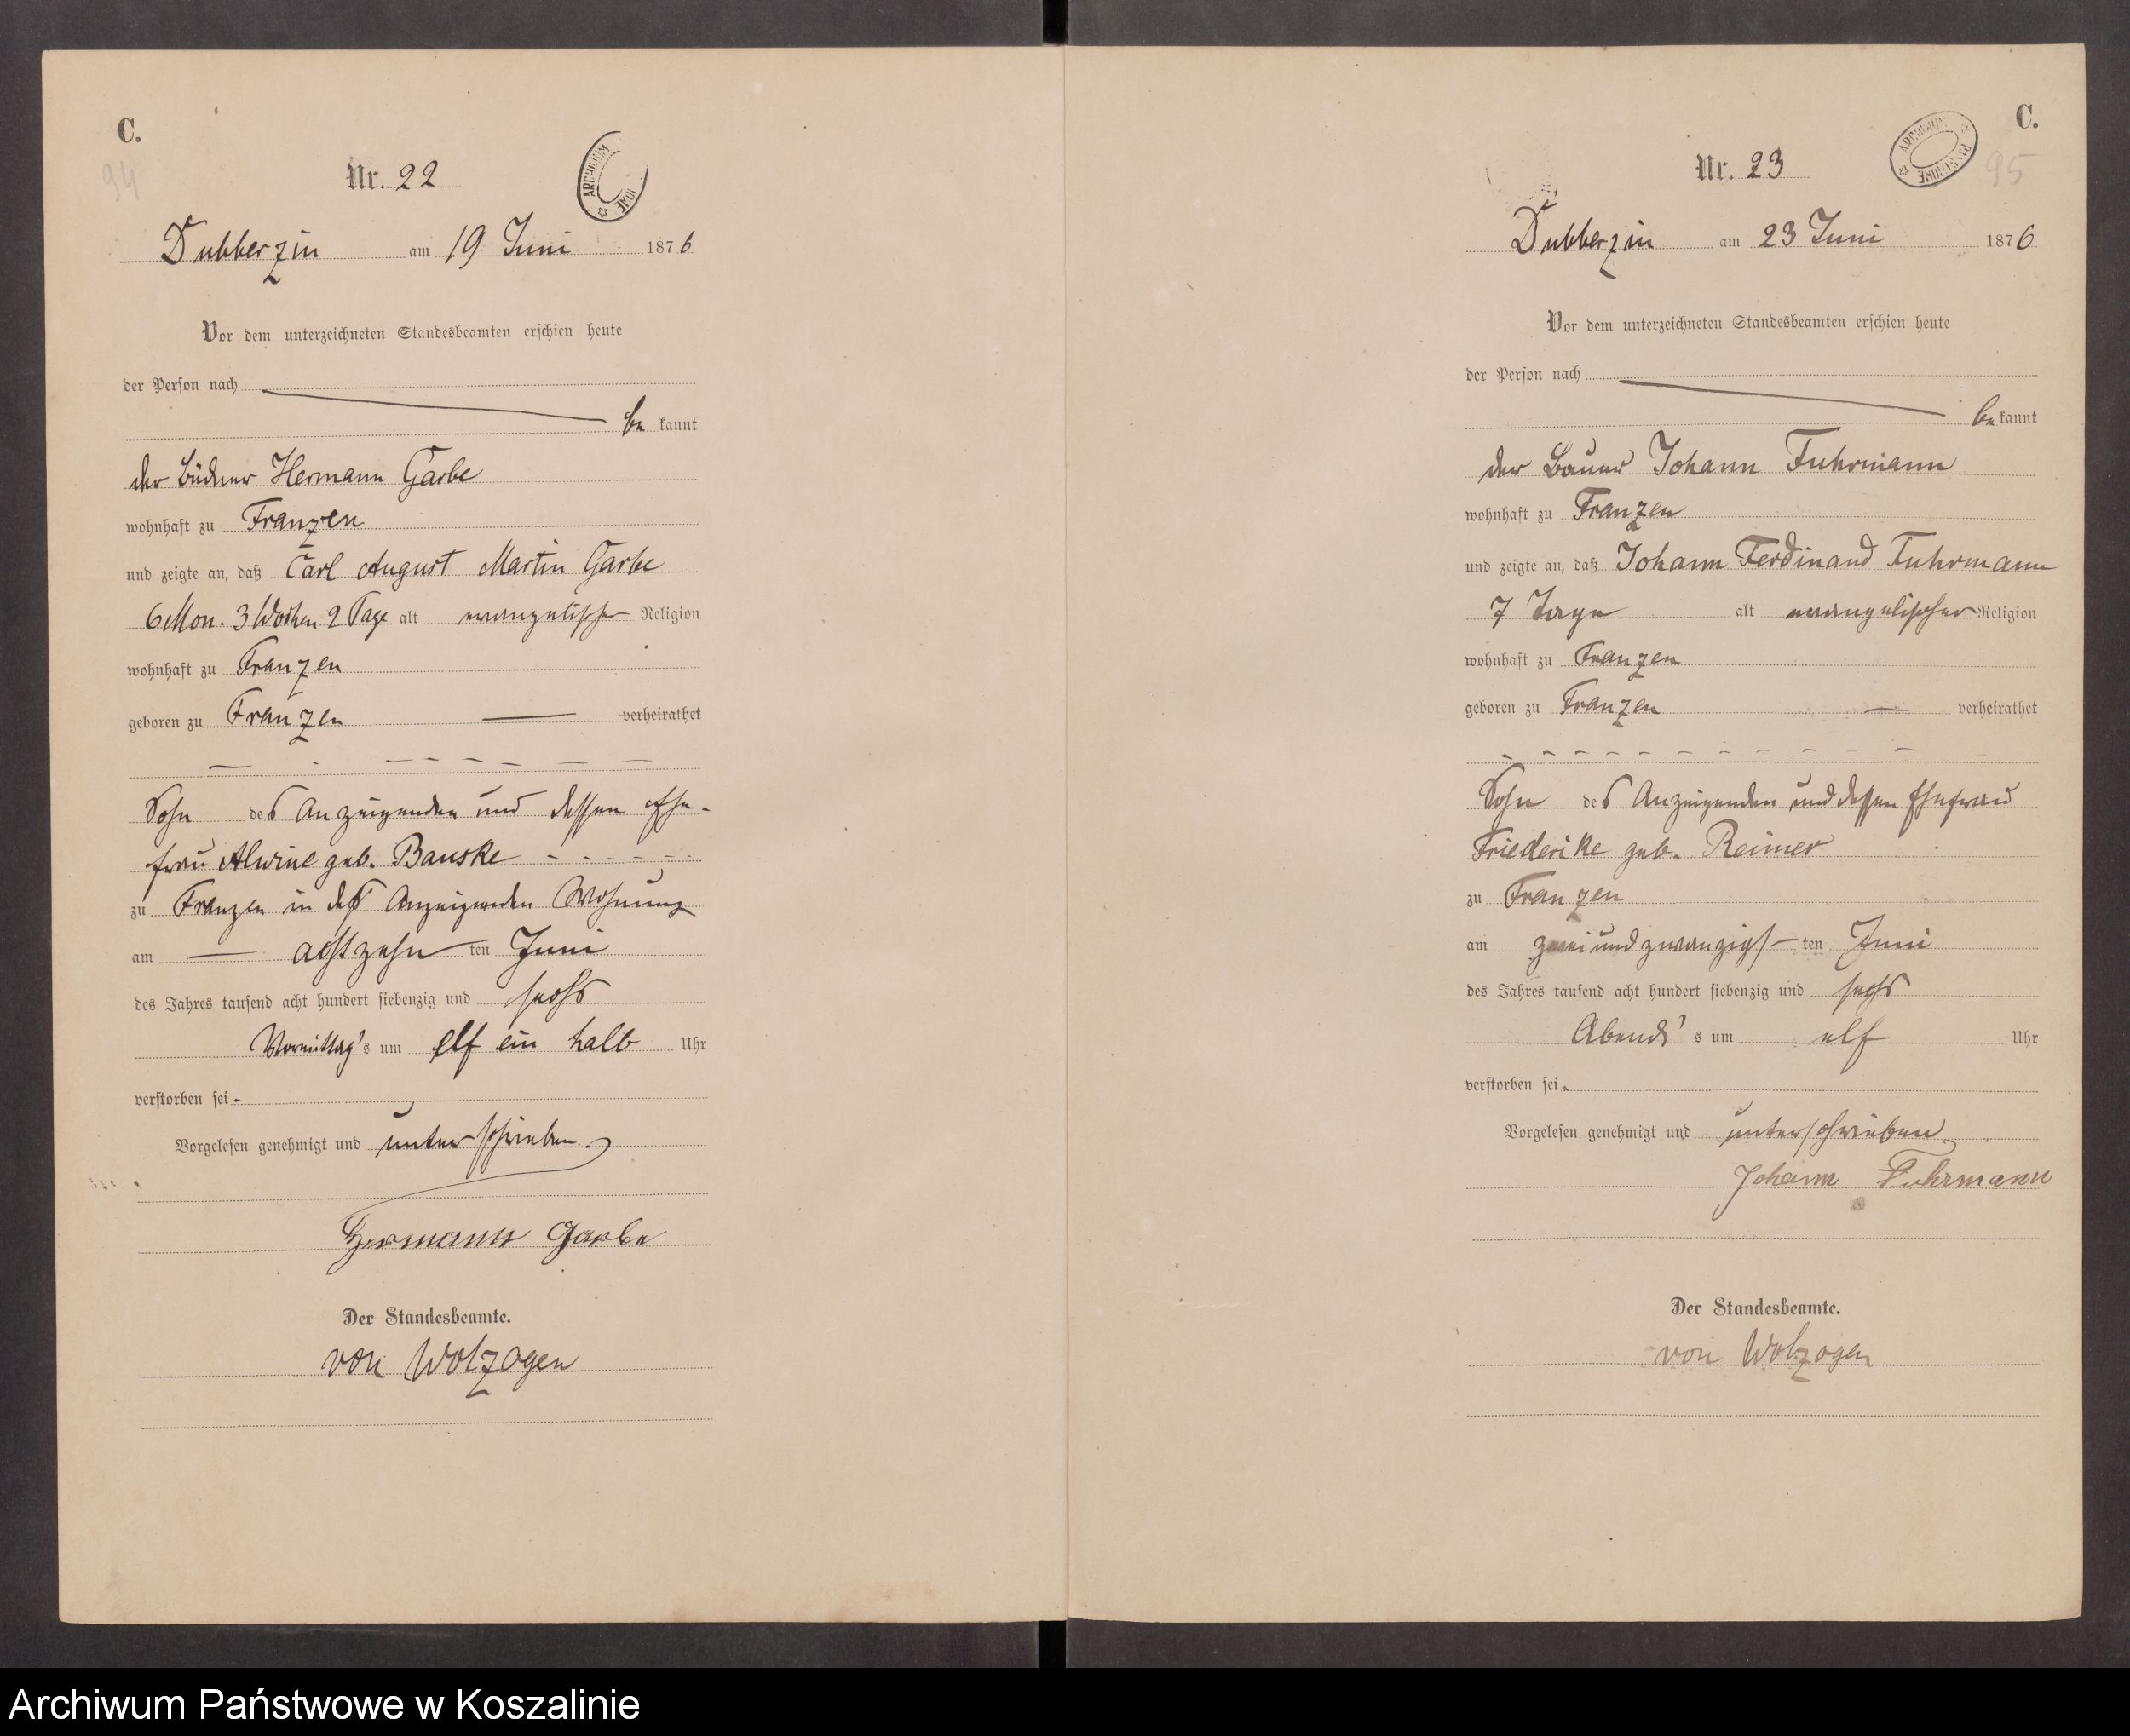 C.
94
Nr. 22
ARCHIWUM
Dubberzin am 19 Juni 1876
Vor dem unterzeichneten Standesbeamten erschien heute
der Person nach
be kannt
der Büdner Hermann Garbe
wohnhaft zu Franzen
und zeigte an, daß Carl August Martin Garbe
6 Mon. 3 Wochen 2 Tage alt evangelischer Religion
wohnhaft zu Franzen
geboren zu Franzen — verheirathet
Sohn des Anzeigenden und dessen Ehe-
frau Alwine geb. Banske
zu Franzen in des Anzeigenden Wohnung
am — achtzehn ten Juni
des Jahres tausend acht hundert siebenzig und sechs
Vormittag's um elf ein halb Uhr
verstorben sei.
Vorgelesen genehmigt und unterschrieben
Hermann Garbe
Der Standesbeamte.
von Wolzogen
C.
95
Nr. 23
ARCHIWUM PAŃSTWOWE
Dubberzin am 23 Juni 1876
Vor dem unterzeichneten Standesbeamten erschien heute
der Person nach
be kannt
der Bauer Johann Fuhrmann
wohnhaft zu Franzen
und zeigte an, daß Johann Ferdinand Fuhrmann
7 Tage alt evangelischer Religion
wohnhaft zu Franzen
geboren zu Franzen — verheirathet
Sohn des Anzeigenden und dessen Ehefrau
Friederike geb. Reimer
zu Franzen
am zwei und zwanzigs— ten Juni
des Jahres tausend acht hundert siebenzig und sechs
Abends' s um elf Uhr
verstorben sei.
Vorgelesen genehmigt und unterschrieben
Johann Fuhrmann
Der Standesbeamte.
von Wolzogen
Archiwum Państwowe w Koszalinie